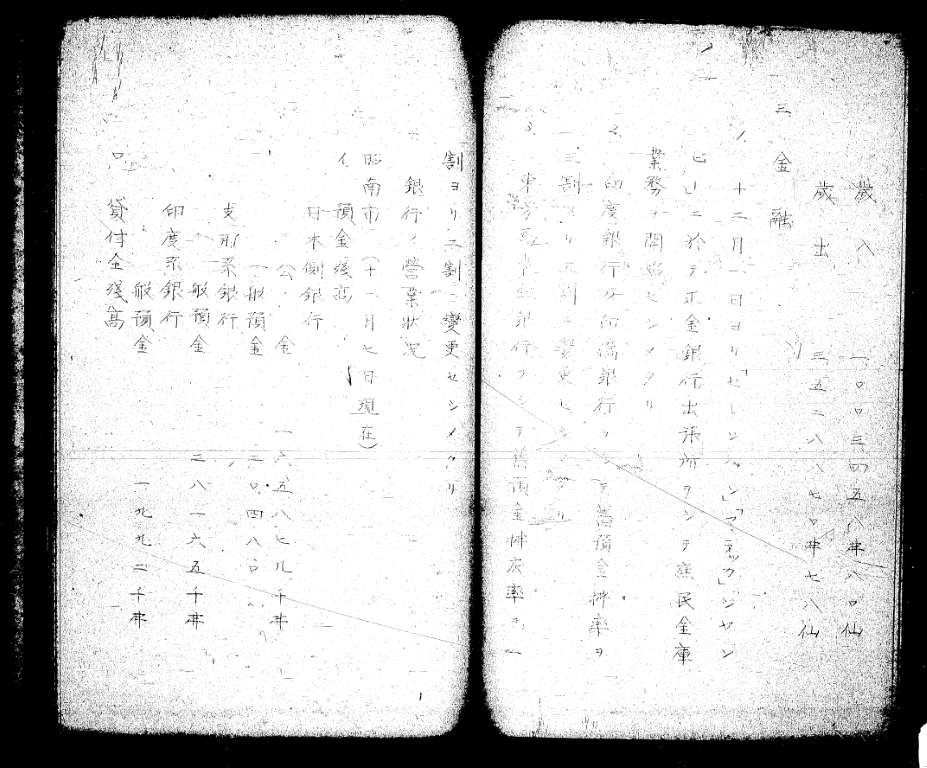 歳入 一〇〇三四五八弗八〇仙
歳出 三五二八八七〇弗七八仙
三 金融
1、十二月一日ヨリ「セレンバン」「マラッカ」「ジヤン
ビ」ニ於テ正金銀行出張所ヲシテ庶民金庫
業務ヲ開始セシメタリ
2、印度銀行及印僑銀行ヲシテ旧預金払率ヲ
三割ヨリ 割ニ変更セシメタリ
3、東方 銀行ヲシテ旧預金払戻率ヲ一
割ヨリ二割ニ変更セシメタリ
銀行ノ営業状況
昭南市(十一月七日現在)
イ、預金残高
日本側銀行
公金 一六五八七九千弗
一般預金 三〇四八〇
支那系銀行
一般預金 三八一六五千弗
印度系銀行
一般預金 一九九二千弗
ロ、貸付金残高